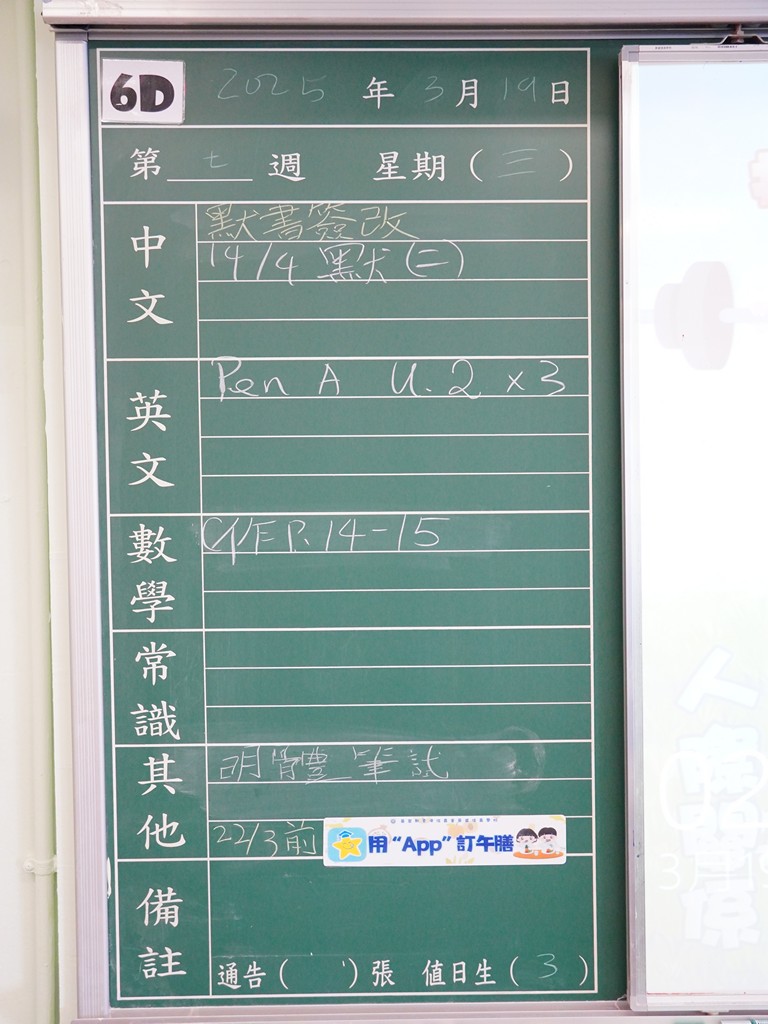 6D 2025年3月19日
第七週 星期(三)
中文
默書簽改
14/4 默(二)
英文
Pen A U.2 x3
數學
P.14-15
常識
其他
明體筆試
22/3前
用“App”訂午膳
備註
通告( )張 值日生(3)
人際關係